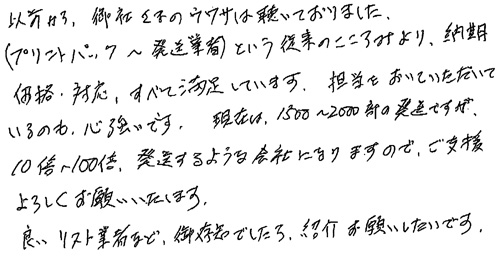 以前から、御社　　のウワサは聴いておりました。
(プリントパック～発送業者)という従来のところより、納期
価格・対応、すべて満足しています。担当をおいていただいて
いるのも、心強いです。現在は、1500～2000部の発送ですが、
10倍～100倍、発送するような会社になりますので、ご支援
よろしくお願いいたします。
良いリスト業者など、御存知でしたら、紹介お願いしたいです。